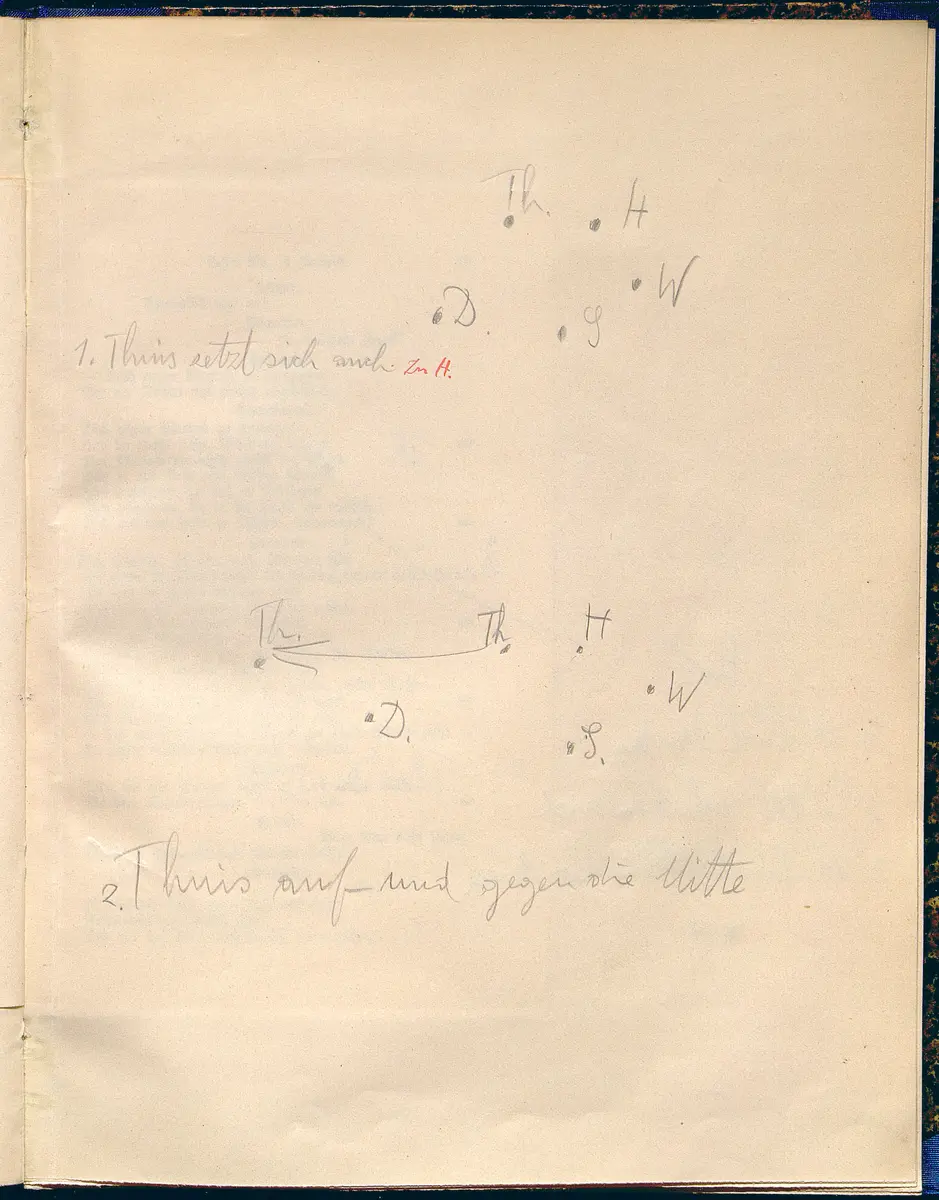 Th. H
W
D.
S
1. Thuis setzt sich auch. Zu H.
Th. Th H
W
D.
S.
2. Thuis auf- und gegen die Mitte